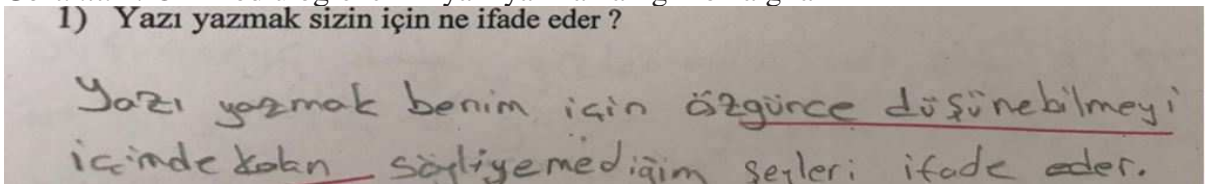 1) Yazı yazmak sizin için ne ifade eder ?
Yazı yazmak benim için özgürce düşünebilmeyi
içimde kalan söyliyemediğim şeyleri ifade eder.